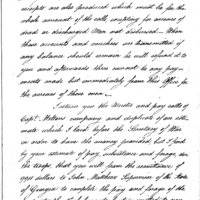 receipts are also produced which must be for the
whole amount of the rolls, excepting for arrears of
dead or discharged Men not disbursed. When
these accounts and vouchers are transmitted if
any balance should remain he will refund it to
you and afterwards there cannot be any pay-
ments made but immediately from this Office for
the arrears of those men.
I return you the Muster and pay rolls of
Capt. company and duplicate of an esti-
mate which I laid before the Secretary of War
in order to have the money provided, but I find
by your estimate of pay, subsistence and forage for
the troops that you will from the remittance of
dollars to John Matthews Supervisor of the State
of Georgia to complete the pay and forage of the